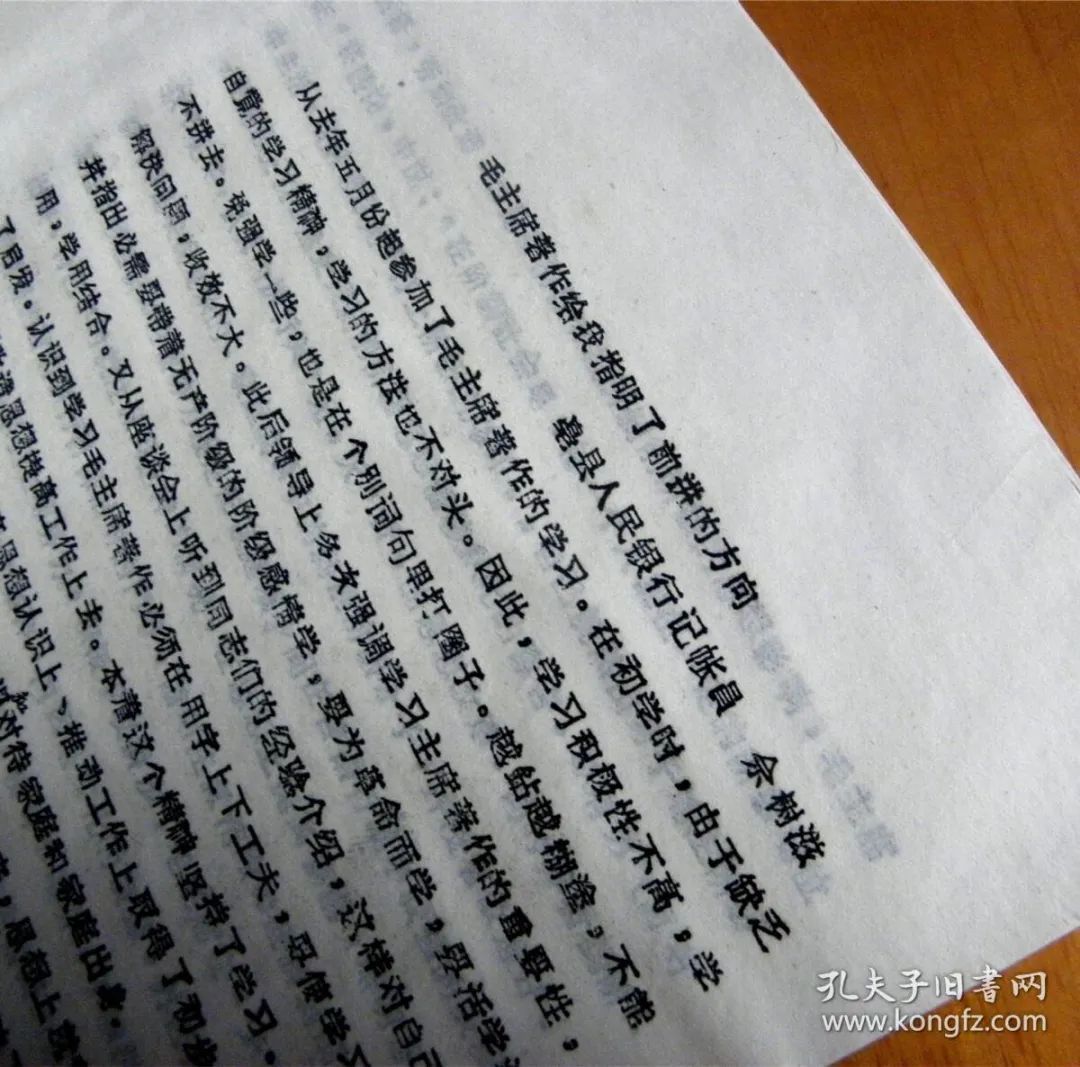 毛主席著作给我指明了前进的方向
亳县人民银行记帐員 余树滋
从去年五月份起参加了毛主席著作的学习。在初学时，由于缺乏
自覚的学习精神，学习的方法也不对头。因此，学习积极性不高，学
不进去。免强学一些，也是在个别词句里打圈子。越鉆越糊塗，不能
解决问题，收效不大。此后领导上多次强调学习主席著作的重要性，
并指出必需要带着无产阶级的阶级感情学，要为革命而学，要活学
用，学用结合。又从座谈会上听到同志们的经验介绍，这样对自己
了启发。认识到学习毛主席著作必须在用字上下工夫，要使学习
思想提高工作上去。本着这个精神坚持了学习。
思想认识上、推动工作上取得了初步
对待家庭和家庭出身。
思想上
孔夫子旧书网
www.kongfz.com